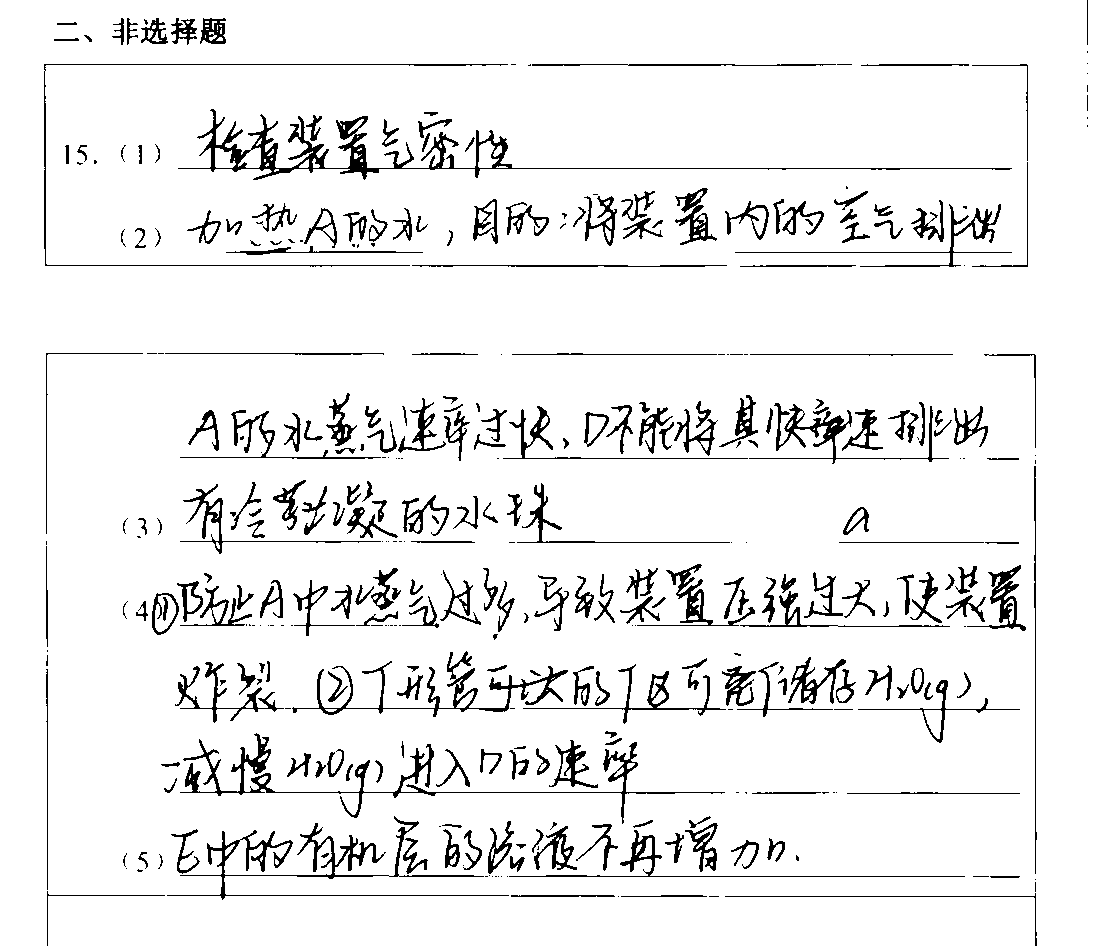 二、非选择题
15.（1）检查装置气密性
（2）加热A的水，目的：将装置内的空气排出
A的水蒸气速率过快，D不能将其快率速排出
（3）有冷凝的水珠 a
（4）①防止A中水蒸气过多，导致装置压强过大，使装置
炸裂. ②T形管可 的 可 储存H2O(g)，
减慢H2O(g)进入D的速率
（5）E中的有机层的溶液不再增加.